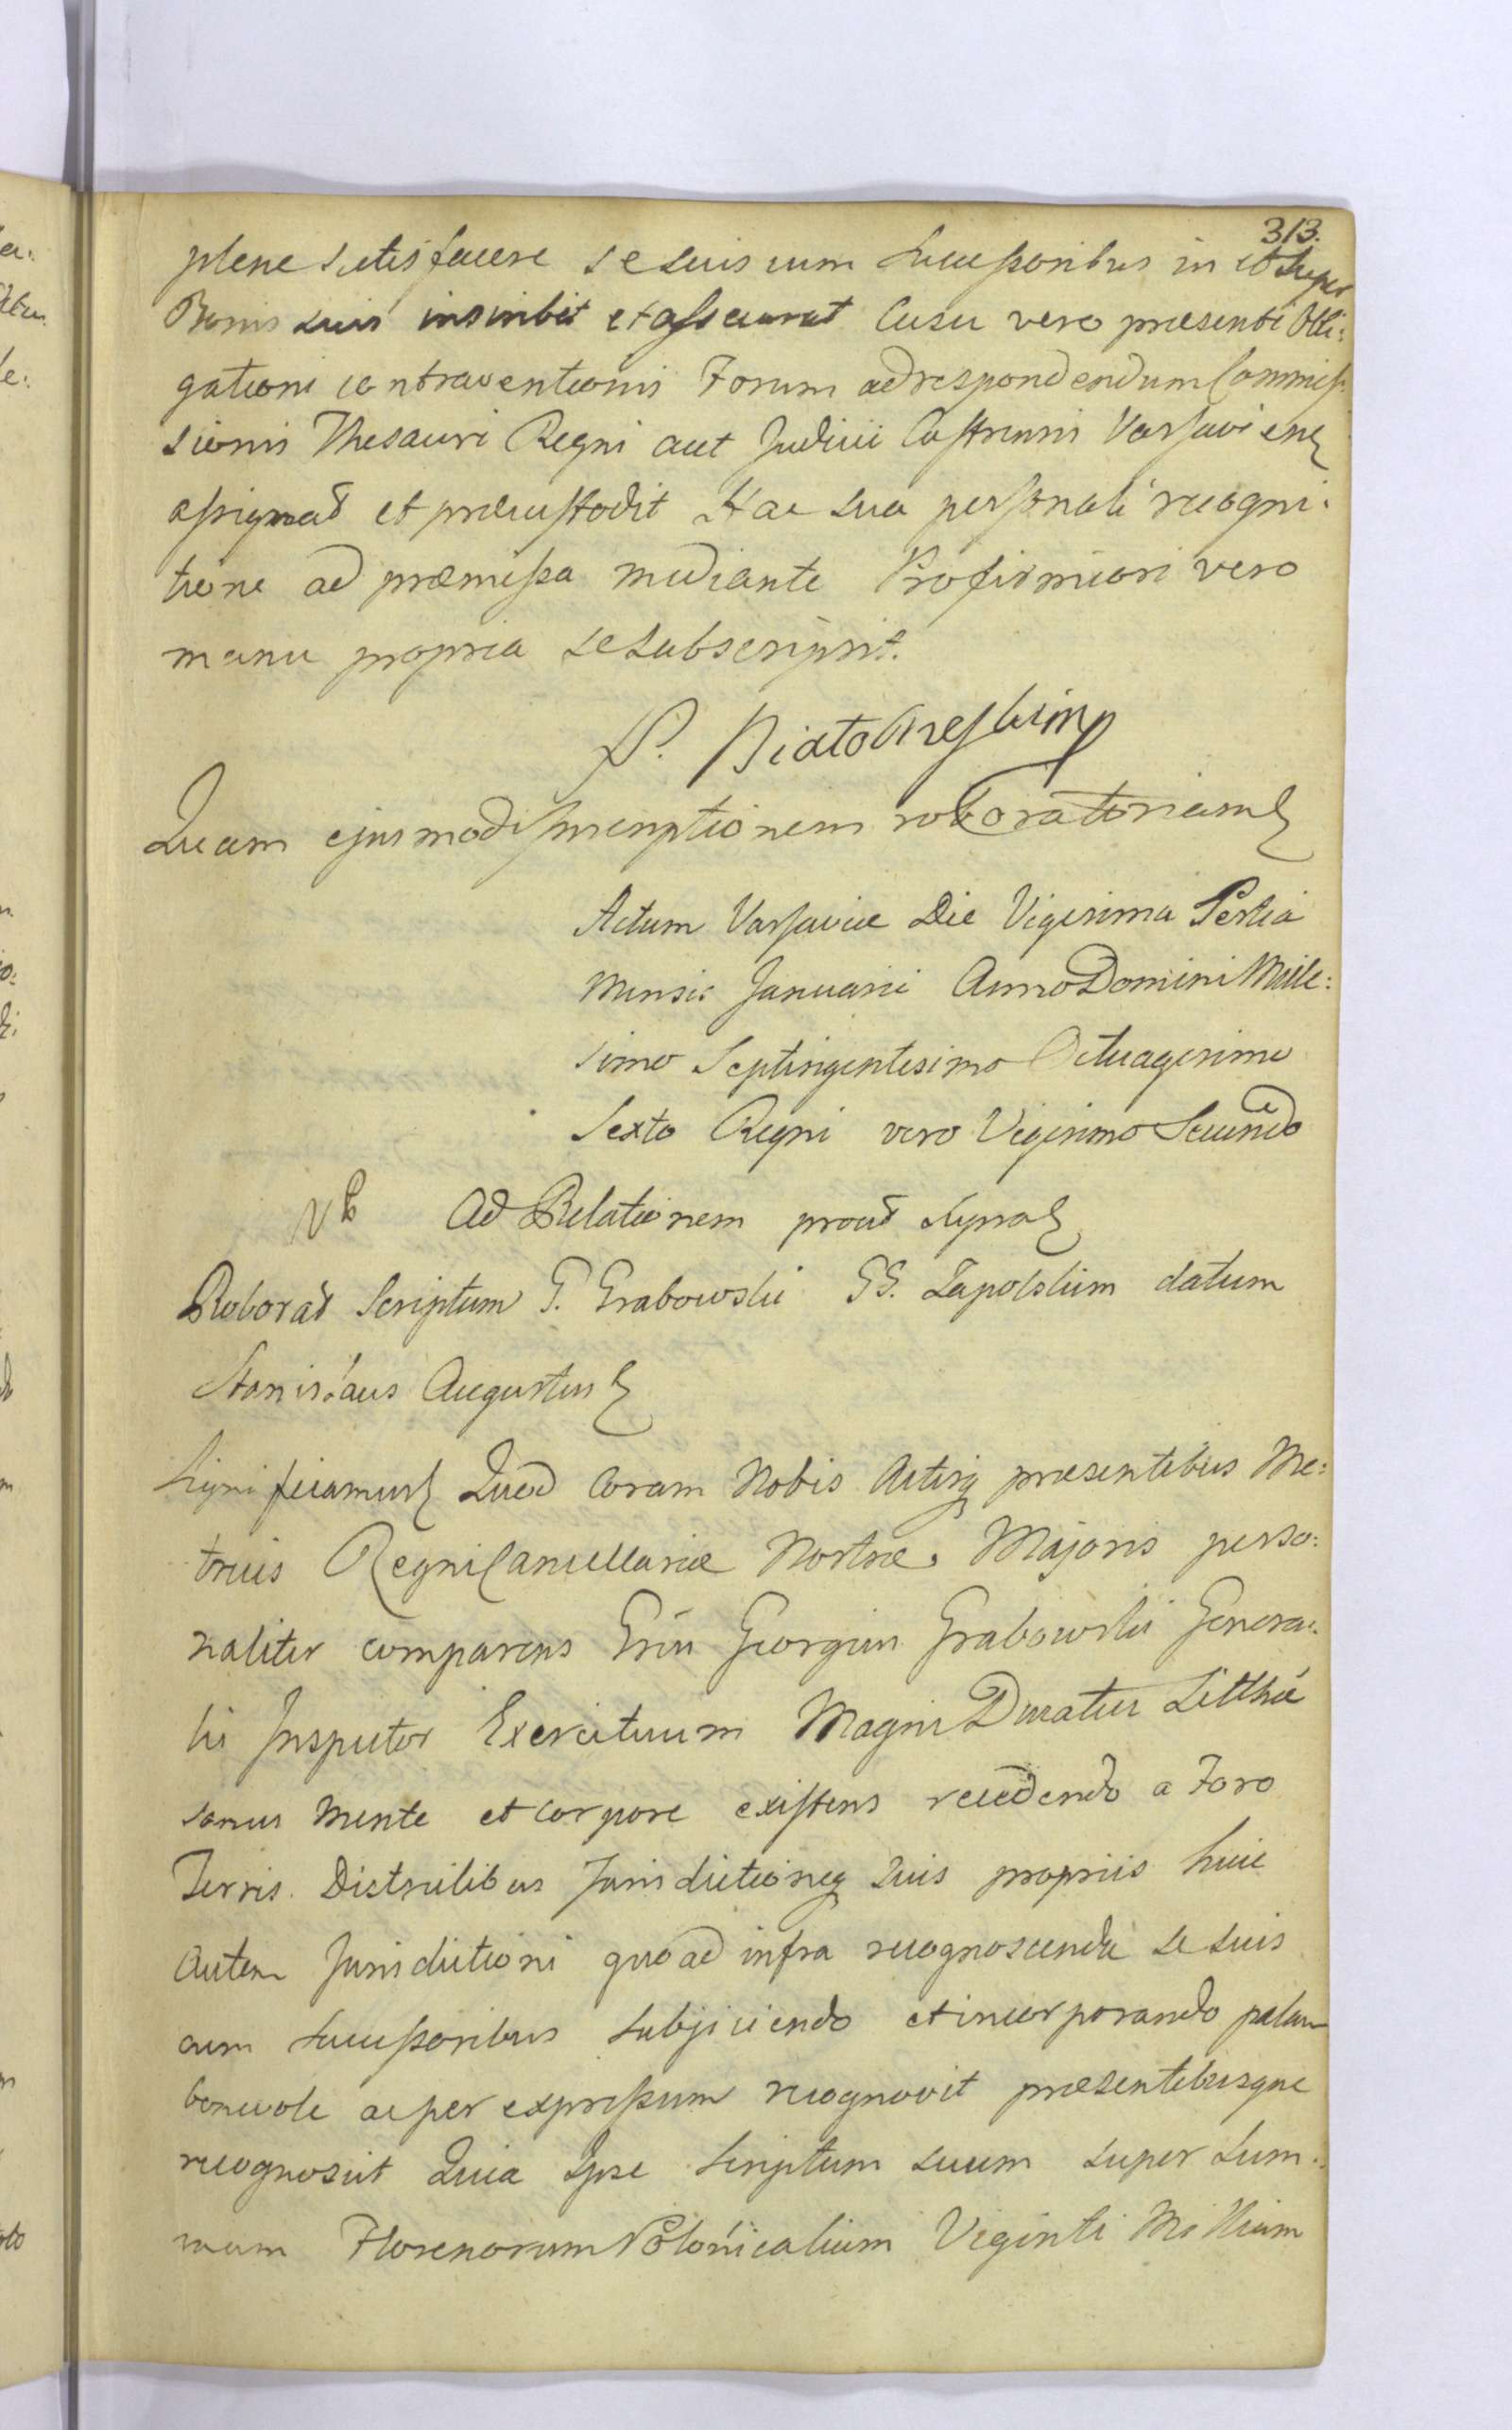 313.
plene satisfacere se suis cum Successoribus in et super
Bonis suis inscribit et assecurat Casu vero præsenti Obli:
gationi contraventionis Forum ad respondendum Commis:
sionis Thesauri Regni aut Judicii Castrensis Varsavien
assignat et præcustodit Hac sua personali recogni:
tione ad præmissa mediante Pro firmiori vero
manu propria se subscripsit.
Quam ejusmodi inscriptionem roboratoriam
Actum Varsaviæ Die Vigesima Tertia
Mensis Januarii Anno Domini Mille:
simo Septingentesimo Octuagesimo
Sexto Regni vero Vigesimo Secundo
Ad Relationem prout supra
Roborat Scriptum G. Grabowski GG. Zapolskim datum
Stanislaus Augustus
Significamus Quod Coram Nobis Actisq præsentibus Me:
trices Regni Cancellariæ Nostræ Majoris perso:
naliter comparens Grsus Georgius Grabowski Genera:
lis Inspector Exercituum Magni Ducatus Litthu
sanus Mente et Corpore existens recedendo a Foro
Terris. Districtibus Jurisdictioneq suis propriis huic
autem Jurisdictioni quoad infra recognoscenda se suis
cum Successoribus subjiciendo et incorporando palam
benevole ac per expressum recognovit præsentibusque
recognoscit Quia Ipse Scriptum suum super Sum:
mam Florenorum Polonicalium Viginti Millium